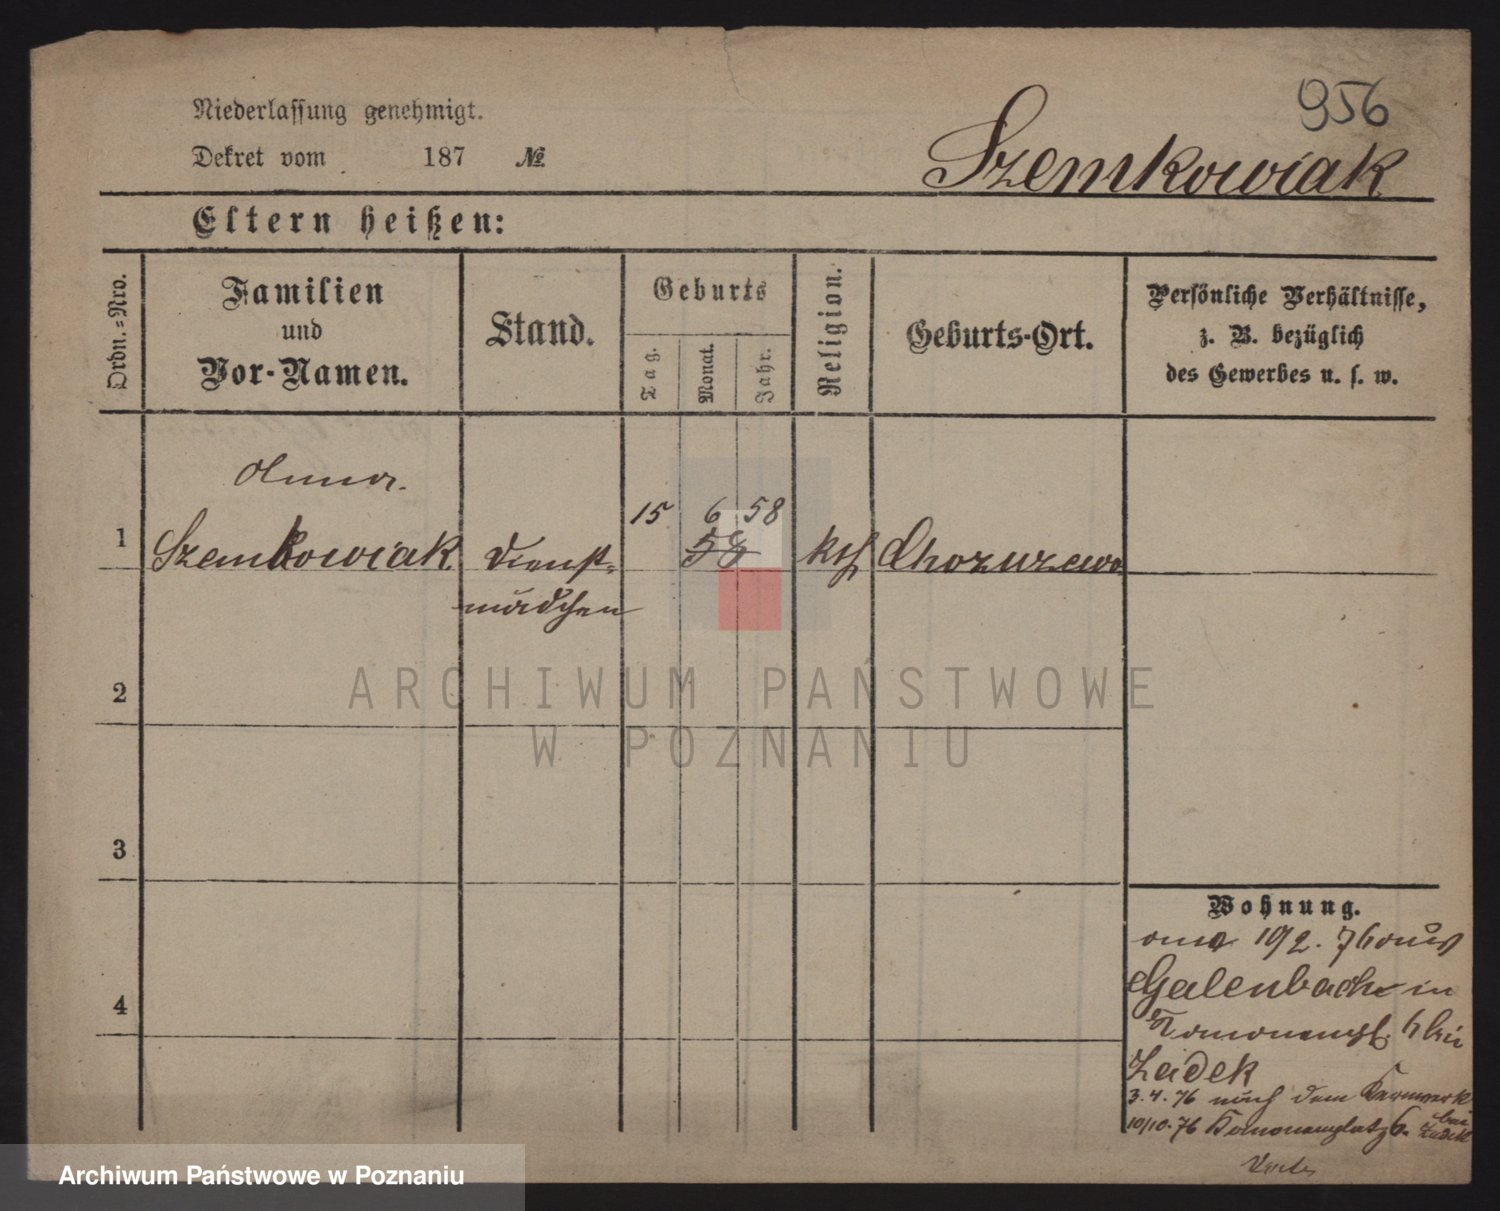 956
Niederlassung genehmigt.
Dekret vom 187 №
Szemkowiak
Eltern heißen:
Ordn.-Nro.
Familien
und
Vor-Namen.
Stand.
Geburts
Tag.
Monat.
Jahr.
Religion.
Geburts-Ort.
Persönliche Verhältnisse,
z. B. bezüglich
des Gewerbes u. s. w.
Anna.
15 6 58
1 Szemkowiak Dienst- 58 kth Chozuzewo
mädchen
2
ARCHIWUM PAŃSTWOWE
W POZNANIU
3
4
Wohnung.
19/2. 76 aus
Galenbach in
6 bei
Zadek
3.4.76 nach dem Kernwerk
10/10.76 Kanonenplatz 6. bei
Zadek
Archiwum Państwowe w Poznaniu